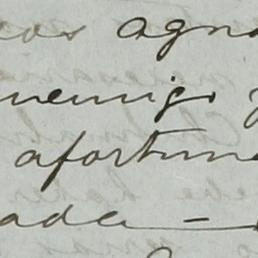 cos agra
enemigo y
afortuna
ada —